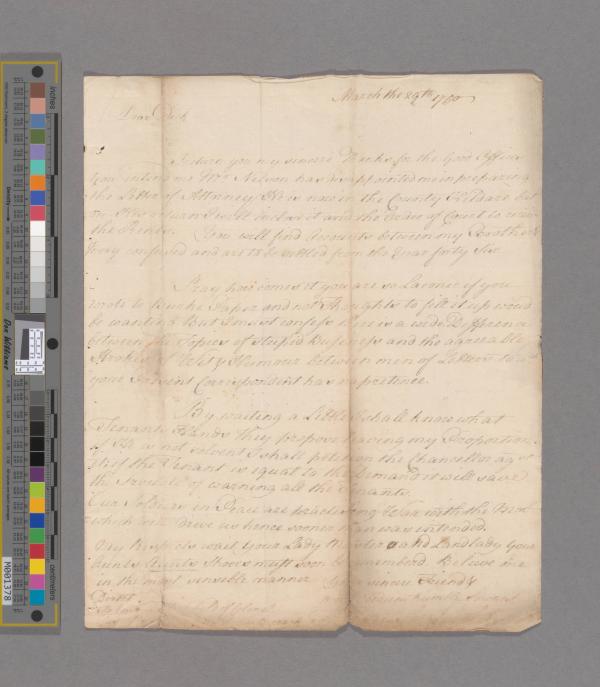 March the 29th 1750
Dear Dick
I return you my sincere Thanks for the Good Offices
you intend me Mrs. Nelson has disappointed me in preparing
the Letter of Attorney He is now in the County Kildare but
on His return I will inclose it and the Order of Court to receive
the Rents. You will find Accounts between my Brother &
very confused and are to be settled from the Year forty Six
Pray how comes it you are so Laconic if you
wrote to Burke Paper and not Thoughts to fill it up would
be wanting But I must confess there is a wide Difference
between the Topics of Stupid Business and the agreeable
Strokes of Wit & Humour between men of Letters to
your present Correspondent has no pretence.
By waiting a Little I shall know what
Tenants Hands they propose leaving my Proportion
if He is not solvent I shall petition the Chancellor agst
it if the Tenant is equal to the Demand it will save
the trouble of warning all the Tenants.
Our Soldiers in Peace are practising War with the
which will drive us hence sooner than was intended.
My Respects wait your Lady and Landlady your
Aunts Shoes must soon be remembered Believe me
in the most sensible manner your sincere Friend &
Dublin humble Servant